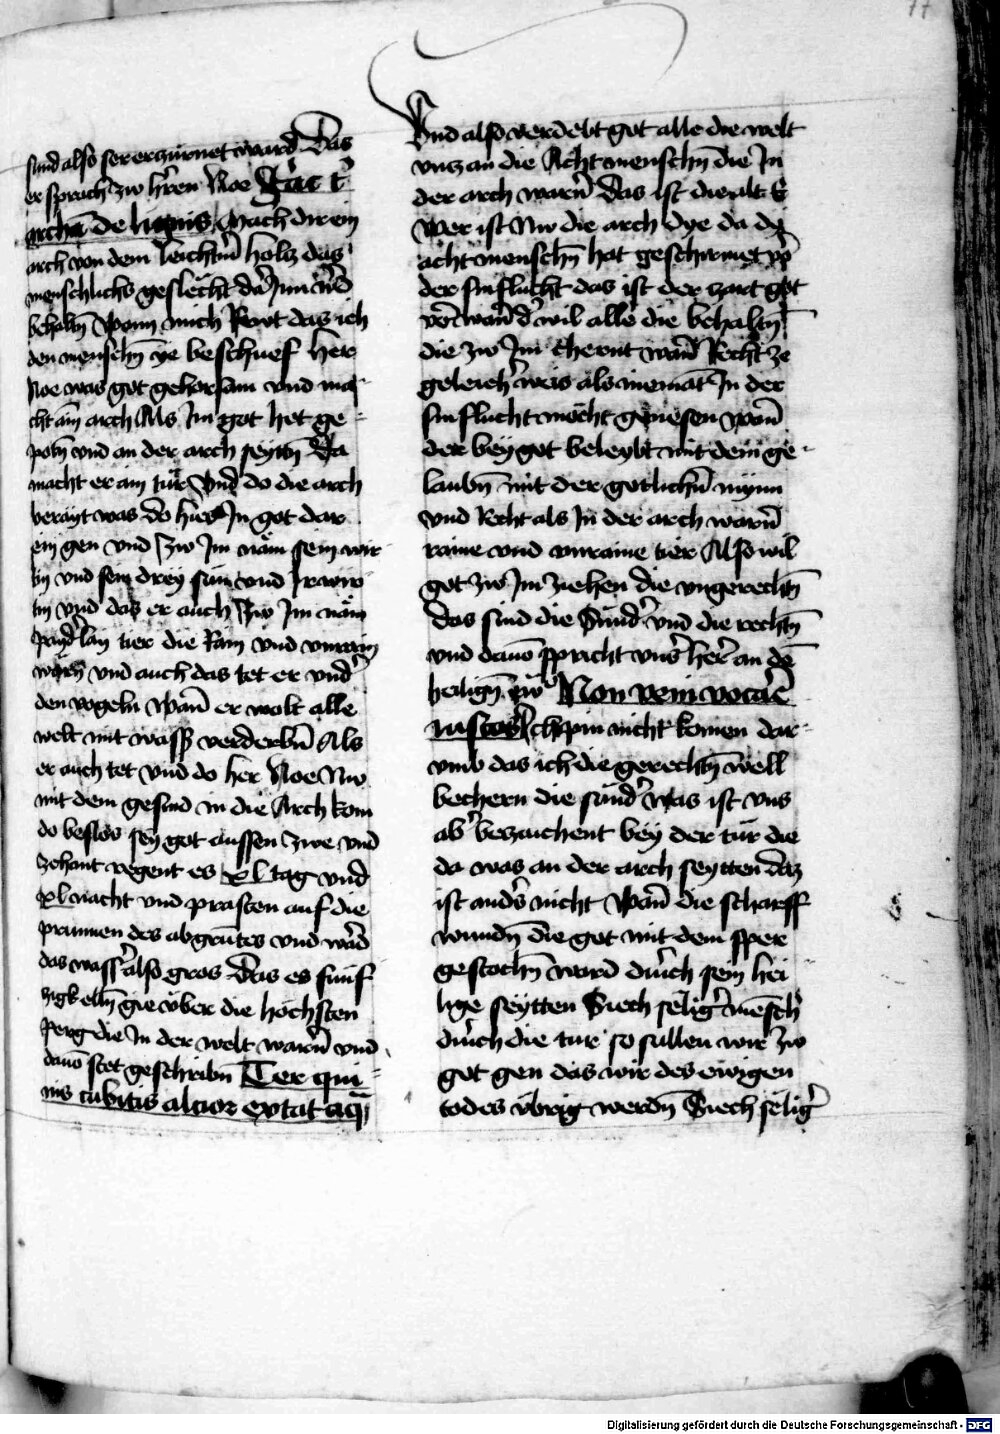 17
sund also ser erczürnet ward Das
er sprach zw hern Noe Fac t̄
archā de lignis Mach dir ein
arch von dem leichtn̄ holtz das
menschlichs geslecht dar Inn werd
behaltn̄ Wann mich Rewt das ich
den menschn̄ ye beschuef Her
Noe was got gehorsam vnd ma=
cht ain arch Als Im got het ge=
potn̄ vnd an der arch seyttn̄ Da
macht er ain tür Vnd do die arch
berayt was do hies In got dar
ein gen vnd zw Im näm sein wir
tin vnd sein drey sün vnd Ir wir
tin vnd das er auch zw Im näm
payd̾lay tier die Rain vnd vnrain
wärn vnd auch das tet er vnd̾
den vogeln Wan̄ er wolt alle
welt mit wass̾ verderbn̄ Als
er auch tet Vnd do her Noe Nw
mit dem gesind in die Arch kom
do beslos sey got aussen zwe vnd
zehant regent es xl tag vnd
xl nacht vnd prasten auf die
prunnen des abgrūtes vnd ward
das wass̾ also gros Das es fünf
zigk elln̄ gie über die höchsten
perg die In der welt warn̄ vnd
dauō stet geschribn̄ Ter qui=
nis cubitis alcior extat aq̄
Vnd also verdebt got alle die welt
vncz an die Acht menschn̄ die In
der arch warn̄ Das ist die alt E
Wer ist Nw die arch dye da dy
acht menschn̄ hat geschirmet vor
der sinflucht das ist der zart got
vor wan̄ d̾ wil alle die behaltn̄
die zw Im cherent wan̄ Recht ze
geleich̾ weis als niemāt In der
sinflucht mocht genesen Wan̄
der bey got beleybt mit dem ge=
laubn̄ mit der gotlichn̄ mynn
vnd Recht als In der arch warn̄
raine vnd vnraine tier Also wil
got zw Im ziehen die vngerechtn̄
das sind die Sünd̾ vnd die rechtn̄
vnd dauō spricht vns̾ her̾ an dē
heilign̄ ew̾ Non veni vocare
iustos Ich pin nicht komen dar=
vmb das ich die gerechtn̄ well
bechern die sünd̾ Was ist vns
ab̾ beczaichent bey der tür die
da was an der arch seytten Daz
ist and̾s nicht Wan̄ die scharff
wundn̄ die got mit dem sper
gestochn̄ ward durch sein hei
lige seytten Siech selig̾ mēsch
durch die tür so sullen wir zw
got gen das wir des ewigen
todes übrig werdn̄ Siech selig̾
Digitalisierung gefördert durch die Deutsche Forschungsgemeinschaft - DFG